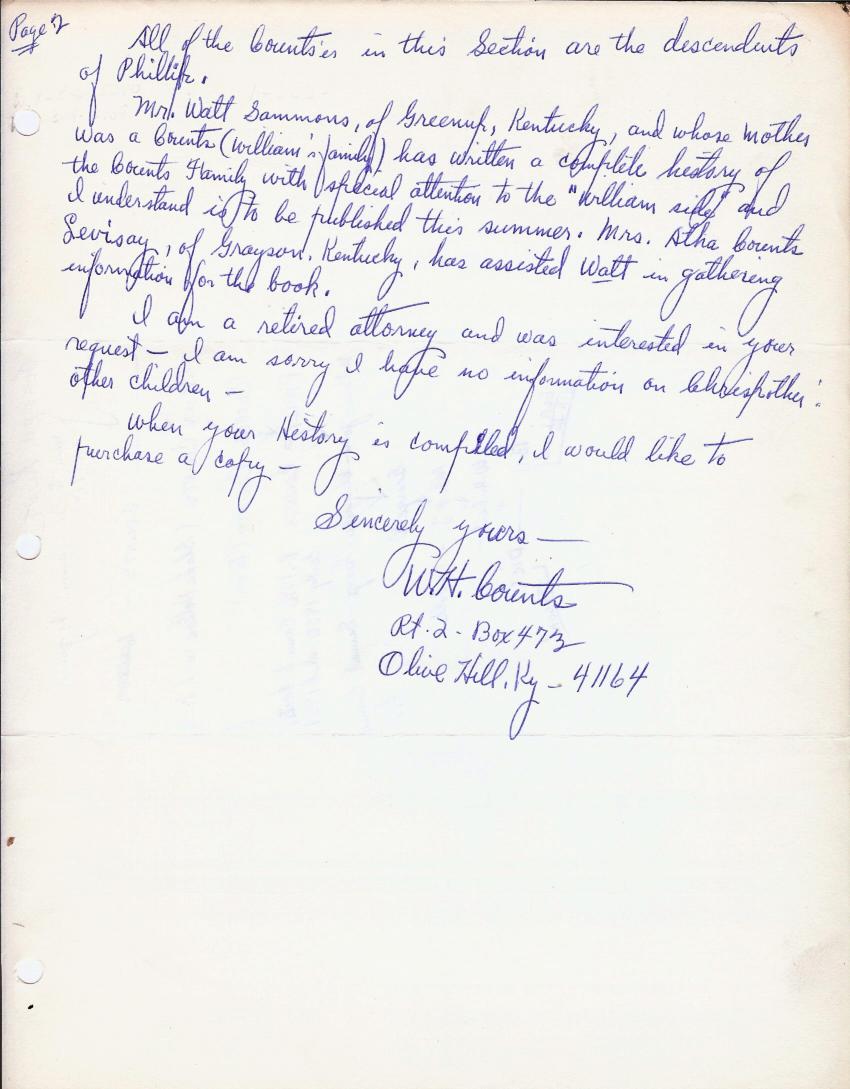 Page 2
All of the Counts'es in this Section are the descendents
of Phillip.
Mr. Watt Sammons, of Greenup, Kentucky, and whose mother
was a Counts (William's family) has written a complete history of
the Counts Family with special attention to the "William side" and
I understand is to be published this summer. Mrs. Atha Counts
Levisay, of Grayson, Kentucky, has assisted Watt in gathering
information for the book.
I am a retired attorney and was interested in your
request — I am sorry I have no information on
other children —
When your History is compiled, I would like to
purchase a copy —
Sincerely yours —
W.H. Counts
Rt. 2 - Box 473
Olive Hill, Ky - 41164